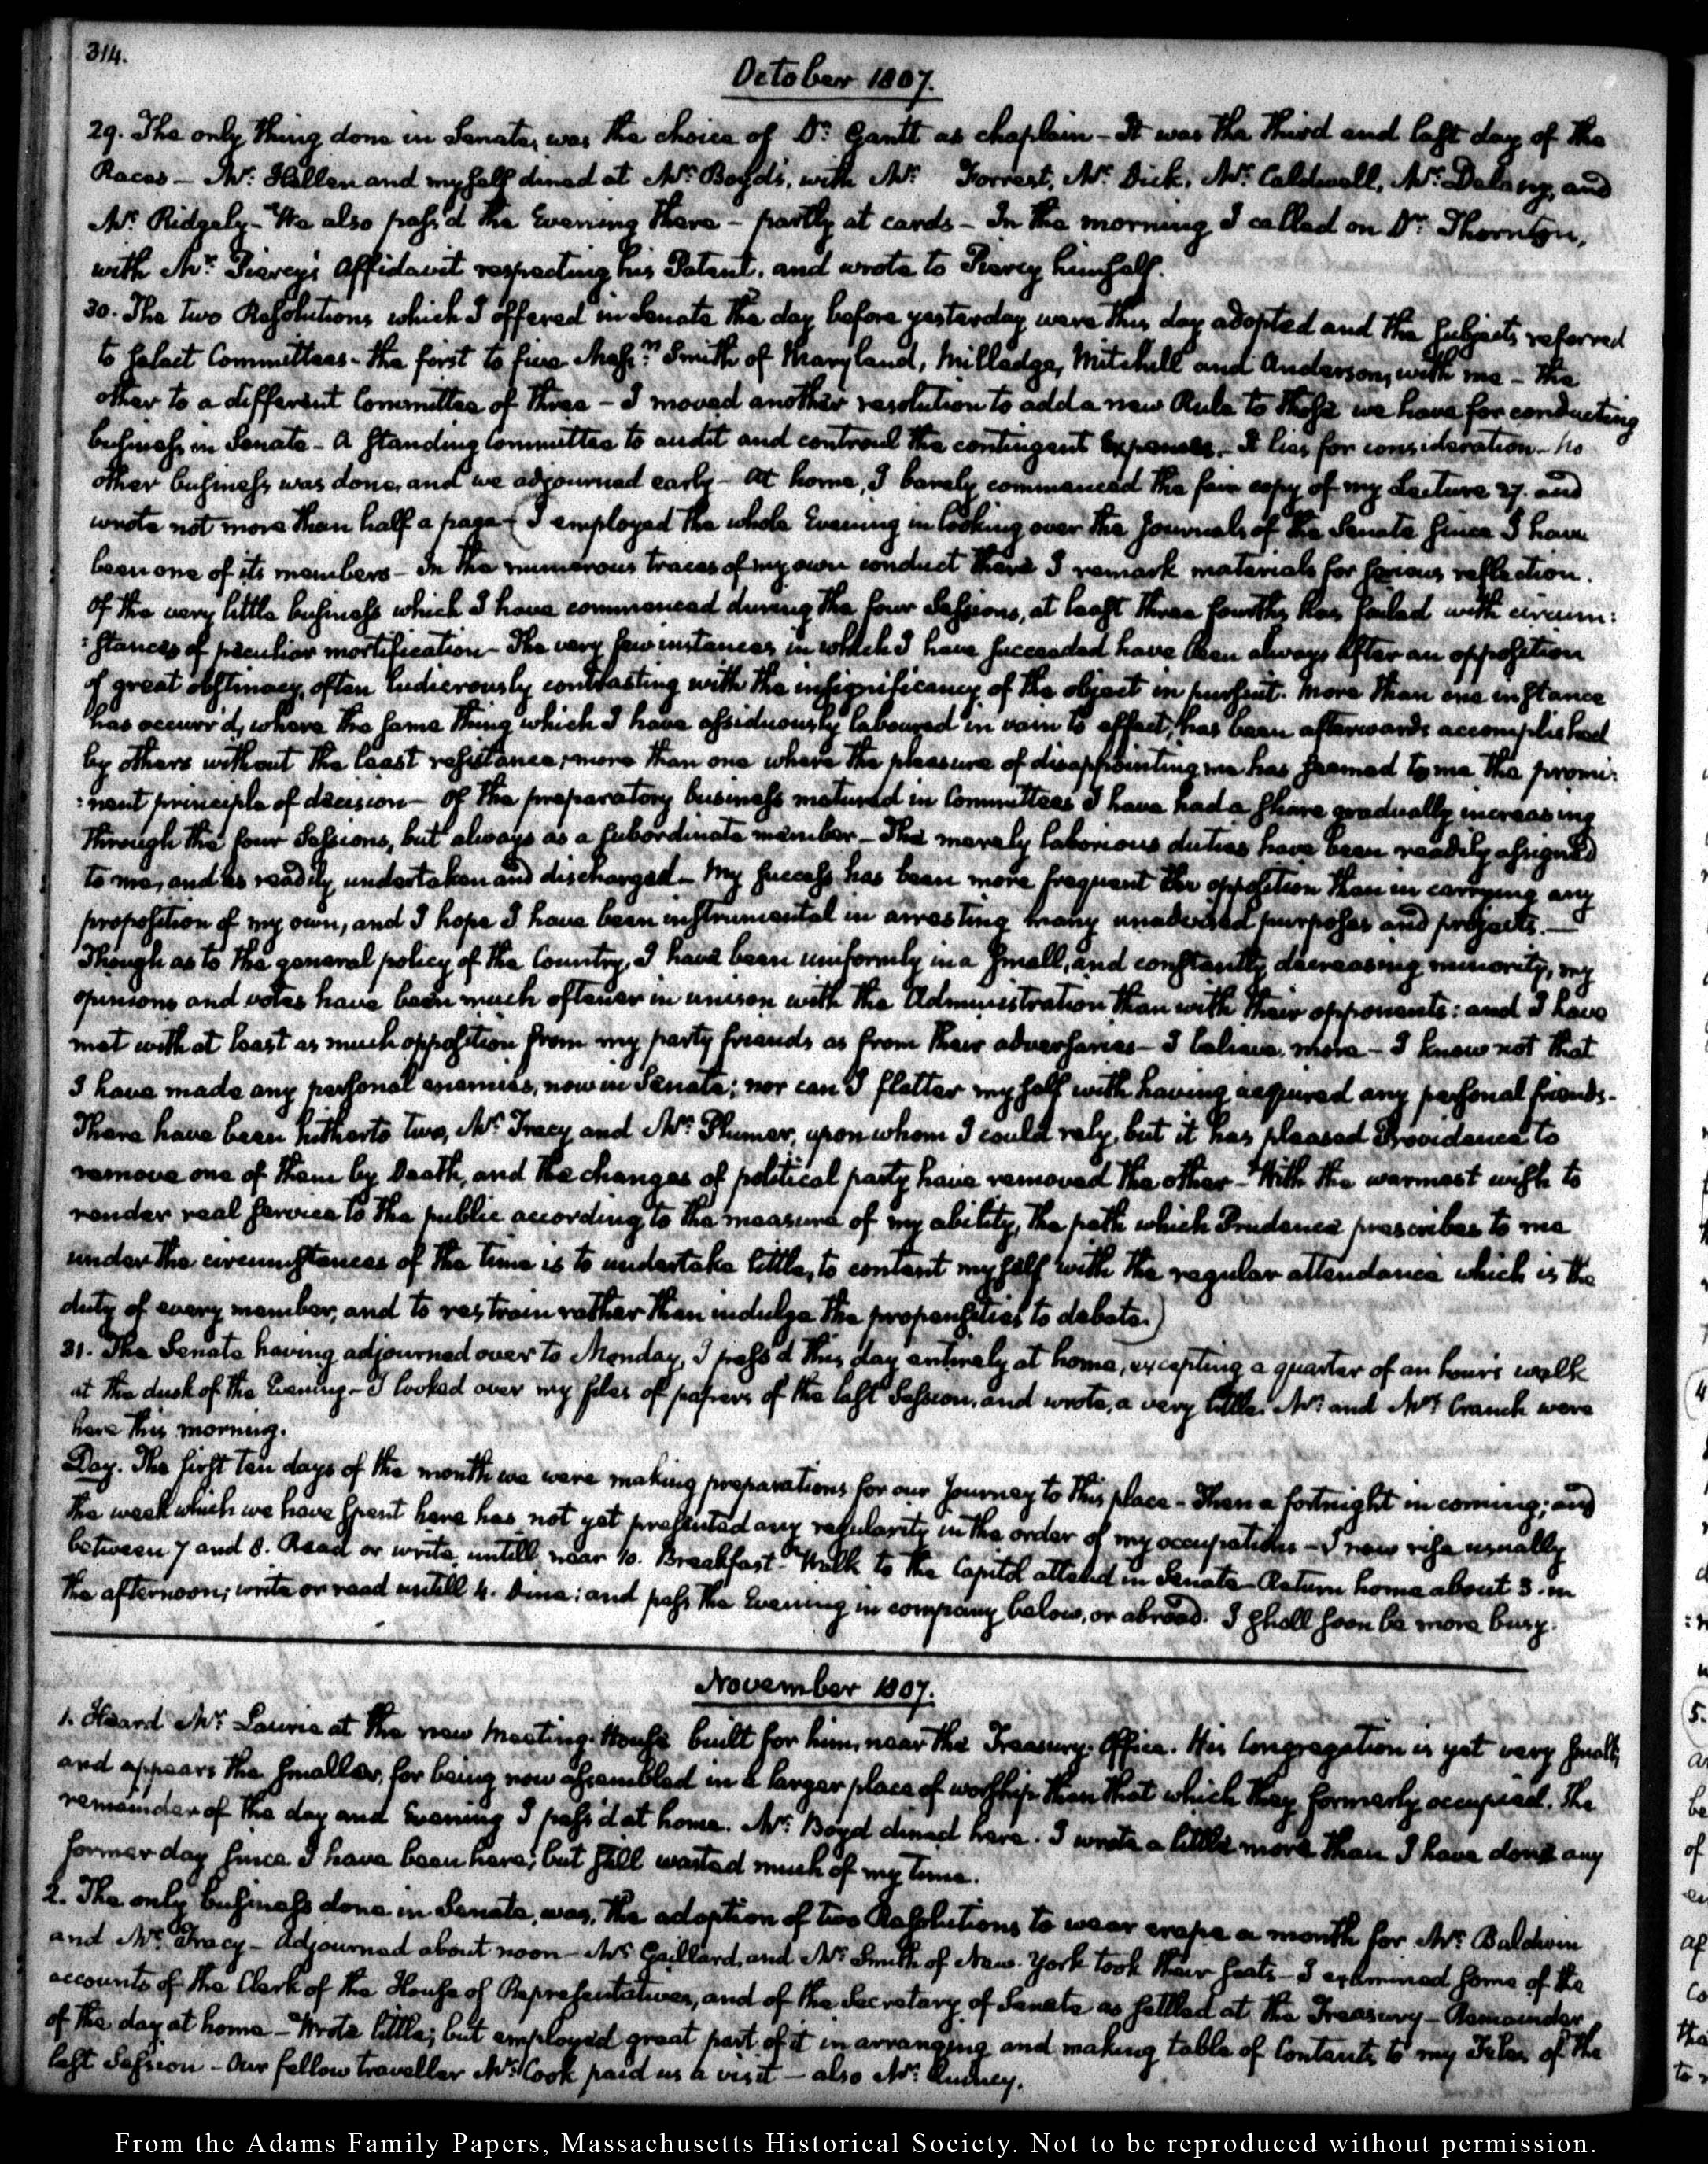 314.
October 1807.
29. The only thing done in Senate, was the choice of Dr. Gantt as chaplain – It was the third and last day of the
Races – Mr. Hellen and myself dined at Mr. Boyd's, with Mr. Forrest, Mr. Dick, Mr. Caldwell, Mr. Delany, and
Mr. Ridgely – We also pass'd the Evening there – partly at cards – In the morning I called on Dr. Thornton,
with Mr. Piercy's Affidavit respecting his Patent, and wrote to Piercy himself.
30. The two Resolutions which I offered in Senate the day before yesterday were this day adopted and the subjects referred
to select Committees – the first to five Messrs. Smith of Maryland, Milledge, Mitchill and Anderson, with me – the
other to a different Committee of three – I moved another resolution to add a new Rule to those we have for conducting
business in Senate – A standing Committee to audit and controul the contingent Expenses – It lies for consideration – No
other business was done, and we adjourned early – At home, I barely commenced the fair copy of my Lecture 27. and
wrote not more than half a page – (I employed the whole Evening in looking over the Journals of the Senate since I have
been one of its members – In the numerous traces of my own conduct there I remark materials for serious reflection.
Of the very little business which I have commenced during the four Sessions, at least three fourths has failed with circum:
:stances of peculiar mortification – The very few instances in which I have succeeded have been always after an opposition
of great obstinacy, often ludicrously contrasting with the insignificancy of the object in pursuit. More than one instance
has occurr'd, where the same thing which I have assiduously laboured in vain to effect, has been afterwards accomplished
by others without the least resistance; more than one where the pleasure of disappointing me has seemed to me the promi:
:nent principle of decision – Of the preparatory business matured in Committees I have had a share gradually increasing
through the four Sessions, but always as a subordinate member – The merely laborious duties have been readily assigned
to me, and as readily undertaken and discharged – My success has been more frequent in opposition than in carrying any
proposition of my own, and I hope I have been instrumental in arresting many unadvised purposes and projects. –
Though as to the general policy of the Country, I have been uniformly in a small, and constantly decreasing minority, my
opinions and votes have been much oftener in unison with the Administration than with their opponents: and I have
met with at least as much opposition from my party friends as from their adversaries – I believe, more – I know not that
I have made any personal enemies, now in Senate; nor can I flatter myself with having acquired any personal friends –
There have been hitherto two, Mr. Tracy and Mr. Plumer, upon whom I could rely, but it has pleased Providence to
remove one of them by Death, and the changes of political party have removed the other – With the warmest wish to
render real service to the public according to the measure of my ability, the path which Prudence prescribes to me
under the circumstances of the time is to undertake little, to content myself with the regular attendance which is the
duty of every member, and to restrain rather than indulge the propensities to debate.)
31. The Senate having adjourned over to Monday, I pass'd this day entirely at home, excepting a quarter of an hour's walk
at the dusk of the Evening – I looked over my files of papers of the last Session, and wrote, a very little. Mr. and Mrs. Cranch were
here this morning.
Day. The first ten days of the month we were making preparations for our Journey to this place – Then a fortnight in coming; and
the week which we have spent here has not yet presented any regularity in the order of my occupations – I now rise usually
between 7 and 8. Read or write untill near 10. Breakfast – Walk to the Capitol attend in Senate – Return home about 3. in
the afternoon; write or read untill 4. Dine: and pass the Evening in company below, or abroad. I shall soon be more busy.
November 1807.
1. Heard Mr. Laurie at the new meeting-House built for him, near the Treasury-Office. His Congregation is yet very small,
and appears the smaller, for being now assembled in a larger place of worship than that which they formerly occupied. The
remainder of the day and Evening I pass'd at home. Mr. Boyd dined here. I wrote a little more than I have done any
former day since I have been here; but still wasted much of my time.
2. The only business done in Senate, was, the adoption of two Resolutions to wear crape a month for Mr. Baldwin
and Mr. Tracy – Adjourned about noon – Mr. Gaillard, and Mr. Smith of New-York took their seats – I examined some of the
accounts of the Clerk of the House of Representatives, and of the Secretary of Senate as settled at the Treasury – Remainder
of the day at home – Wrote little; but employed great part of it in arranging and making table of Contents to my Files of the
last Session – Our fellow traveller Mr. Cook paid us a visit – also Mr. Quincy.
From the Adams Family Papers, Massachusetts Historical Society. Not to be reproduced without permission.